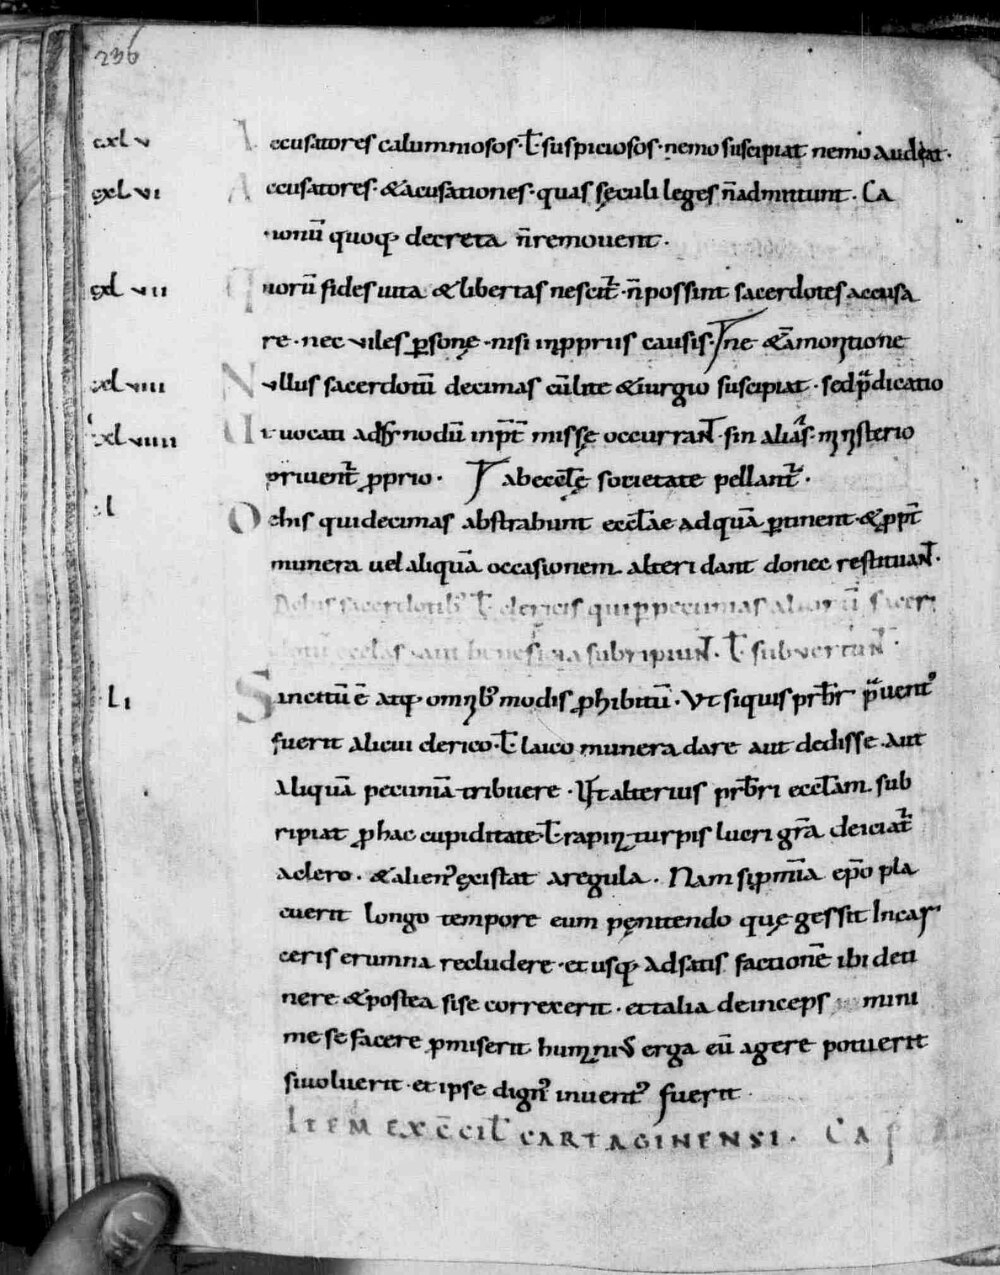 236
cxlv Accusatores calummosos · ł suspiciosos · nemo suscipiat nemo audeat ·
cxlvi Accusatores · & accusationes · quas sęculi leges n̄ admittunt · Ca
nonū quoq; decreta n̄ remouent ·
cxlvii Quorū fides uita & libertas nescit̄ · n̄ possint sacerdotes accusa
re · nec viles ꝑsonę · nisi in ꝓpriis causis · ne & āmonitione
cxlviii Nullus sacerdotū decimas cū lite & iurgio suscipiat · sed p̄dicatio
cxlviiii Ut uocati ad sinodū missę occurrant · sin alias ministerio
priuent̄ ꝓprio · ab ęcclę societate pellant̄ ·
cl De his qui decimas abstrahunt ecclae ad quā ꝑtinent & ꝓpt̄
munera uel aliquā occasionem alteri dant donec restituant ·
De his sacerdotib; ł clericis qui ꝑ pecunias aliorū sacer
dotū ecclas aut beneficia subripiunt · ł subuertunt ·
cli Sancitū ē atq; omnib; modis ꝓhibitū · Vt siquis prb̄r p̄uent᾿
fuerit alicui clerico · ł laico munera dare aut dedisse aut
aliquā pecuniā tribuere · ut alterius prb̄ri eccłam sub
ripiat ꝓ hac cupiditate ł rapina turpis lucri grā deiciat̄
a clero · & alien᾿ existat a regula · Nam si ep̄o pla
cuerit longo tempore eum pęnitendo quę gessit In car
ceris erumna recludere · et usq; ad satis factionē ibi deti
nere & postea si se correxerit · et talia deinceps mini
me se facere ꝓmiserit humanius erga eū agere potuerit
si uoluerit · et ipse dign᾿ inuent᾿ fuerit ·
ITEM EX C̄CIŁ CARTAGINENSI · CAP